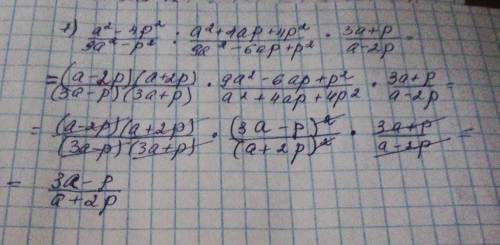 1) (a² - 4p²)/(9a² - p²) : (a² + 4ap + 4p²)/(9a² - 6ap + p²) · (3a + p)/(a - 2p) =
= ((a - 2p)(a + 2p))/((3a - p)(3a + p)) · (9a² - 6ap + p²)/(a² + 4ap + 4p²) · (3a + p)/(a - 2p) =
= ((a - 2p)(a + 2p))/((3a - p)(3a + p)) · (3a - p)²/(a + 2p)² · (3a + p)/(a - 2p) =
= (3a - p)/(a + 2p)